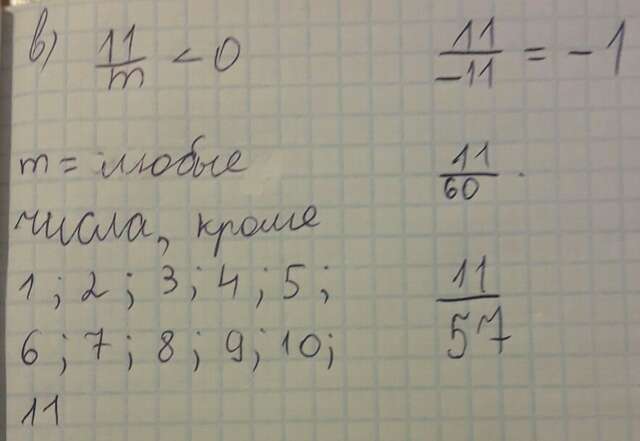 в) 11/m < 0
11/-11 = -1
m = любые
числа, кроме
1; 2; 3; 4; 5;
6; 7; 8; 9; 10;
11
11/60.
11/57